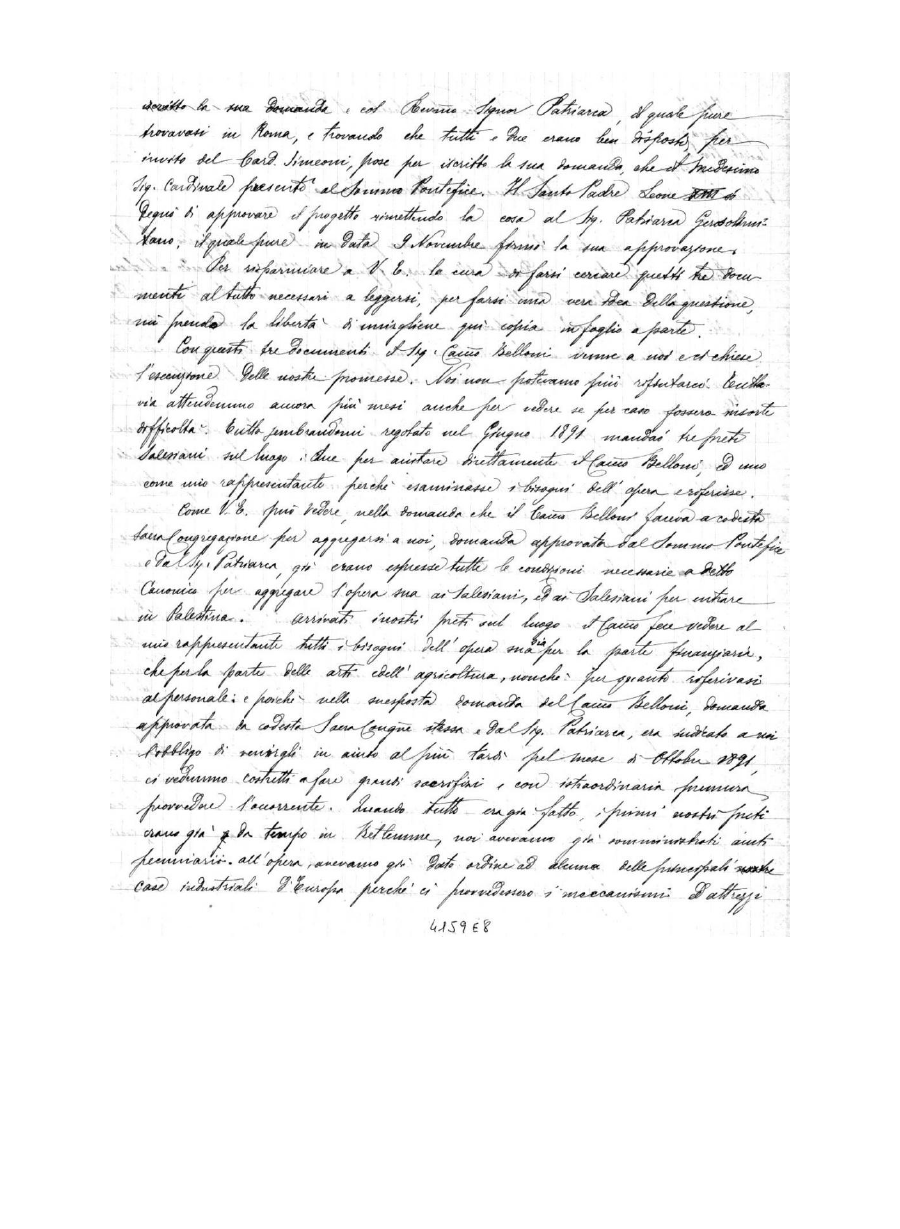 iscritto la sua domanda e col Revmo Signor Patriarca, il quale pure
trovavasi in Roma, e trovando che tutti e due erano ben disposti, per
invito del Card. Simeoni, pose per iscritto la sua domanda, che il medesimo
Sig. Cardinale presentò al Sommo Pontefice. Il Santo Padre Leone XIII si
degnò di approvare il progetto rimettendo la cosa al Sig. Patriarca Gerosolimi-
tano, il quale pure in data 9 Novembre firmò la sua approvazione.
Per risparmiare a V. E. la cura di farsi cercare questi tre docu-
menti al tutto necessari a leggersi, per farsi una vera idea della questione,
mi prendo la libertà di unirgliene qui copia in foglio a parte.
Con questi tre documenti il Sig. Canco Belloni venne a noi e ci chiese
l'esecuzione delle nostre promesse. Noi non potevamo più rifiutarci. Tutta-
via attendemmo ancora più mesi anche per vedere se per caso fossero insorte
difficoltà. Tutto sembrandomi regolato nel Giugno 1891 mandai tre preti
Salesiani sul luogo: due per aiutare direttamente il Canco Belloni, ed uno
come mio rappresentante perchè esaminasse i bisogni dell'opera e riferisse.
Come V. E. può vedere, nella domanda che il Canco Belloni faceva a codesta
Sacra Congregazione per aggregarsi a noi, domanda approvata dal Sommo Pontefice
e dal Sig. Patriarca, già erano espresse tutte le condizioni necessarie a detto
Canonico per aggregare l'opera sua ai Salesiani, ed ai Salesiani per entrare
in Palestina. Arrivati i nostri preti sul luogo il Canco fece vedere al
mio rappresentante tutti i bisogni dell'opera sua sia per la parte finanziaria,
che per la parte delle arti e dell'agricoltura, nonchè per quanto riferivasi
al personale: e poichè nella suesposta domanda del Canco Belloni, domanda
approvata da codesta Sacra Congne stessa e dal Sig. Patriarca, era indicato a noi
l'obbligo di venirgli in aiuto al più tardi pel mese di Ottobre 1891,
ci vedemmo costretti a fare grandi sacrifizi e con istraordinaria premura
provvedere l'occorrente. Quando tutto era già fatto, i primi nostri preti
erano già da tempo in Betlemme, noi avevamo già somministrati aiuti
pecuniarii all'opera, avevamo già dato ordine ad alcuna delle principali nostre
case industriali d'Europa perchè ci provvedessero i meccanismi d'attrezzi
4159E8